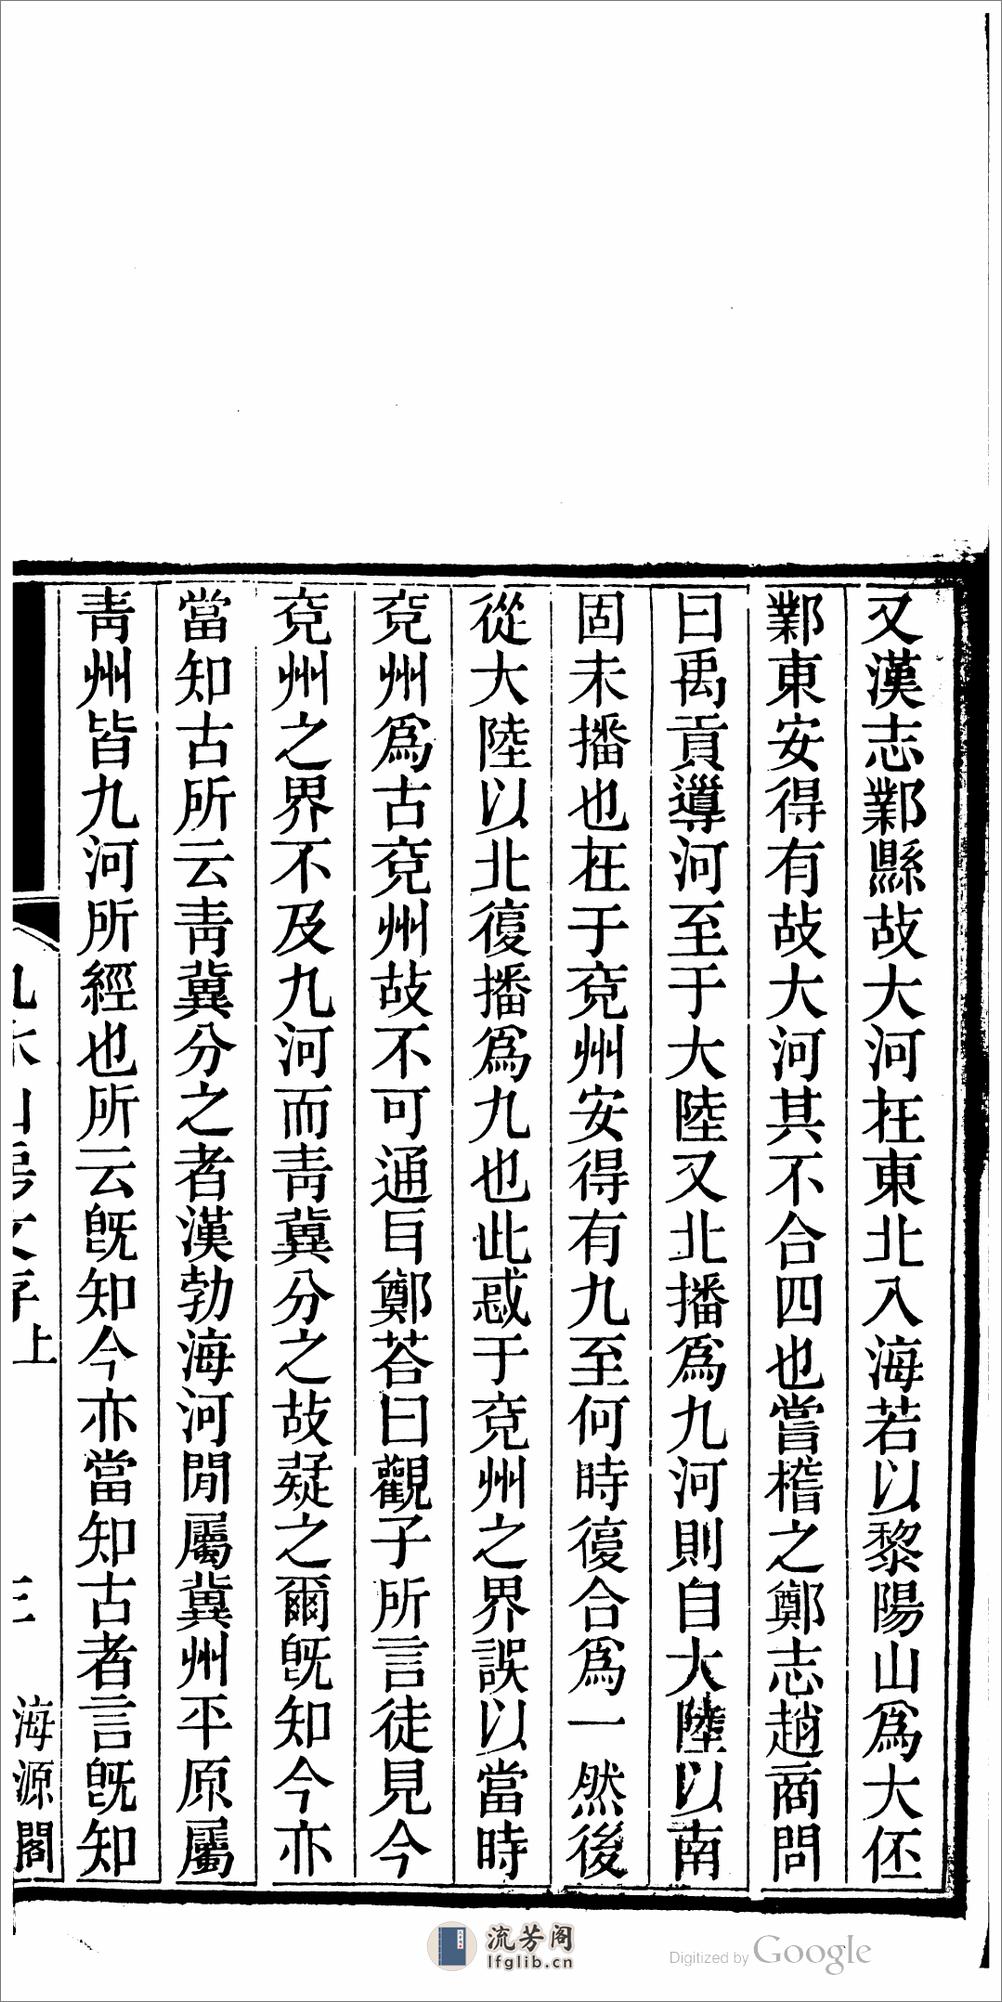 又漢志鄴縣故大河在東北入海若以黎陽山爲大伾
鄴東安得有故大河其不合四也嘗稽之鄭志趙商問
曰禹貢導河至于大陸又北播爲九河則自大陸以南
固未播也在于兗州安得有九至何時復合爲一然後
從大陸以北復播爲九也此惑于兗州之界誤以當時
兗州爲古兗州故不可通耳鄭荅曰觀子所言徒見今
兗州之界不及九河而靑冀分之故疑之爾旣知今亦
當知古所云靑冀分之者漢勃海河閒屬冀州平原屬
靑州皆九河所經也所云旣知今亦當知古者言旣知
上
三
海源閣
流芳阁
lfglib.cn
Digitized by Google